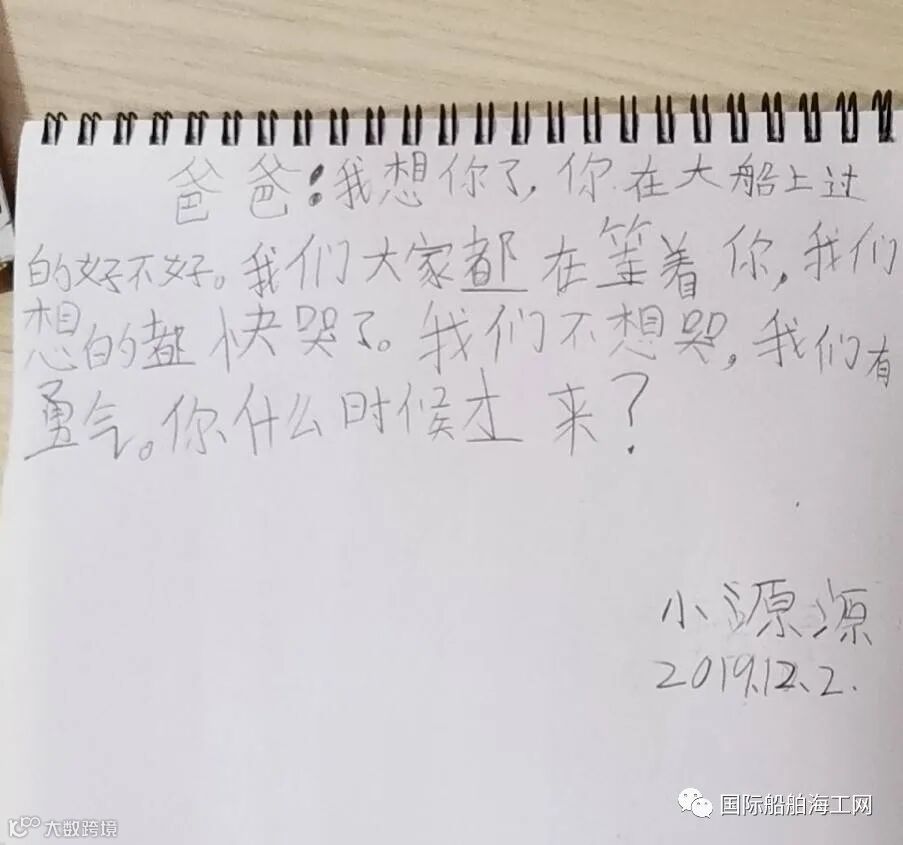 爸爸:我想你了,你在大船上过
的好不好。我们大家都在等着你,我们
想的都快哭了。我们不想哭,我们有
勇气。你什么时候才来?
小源源
2019.12.2.
国际船舶海工网
大数跨境